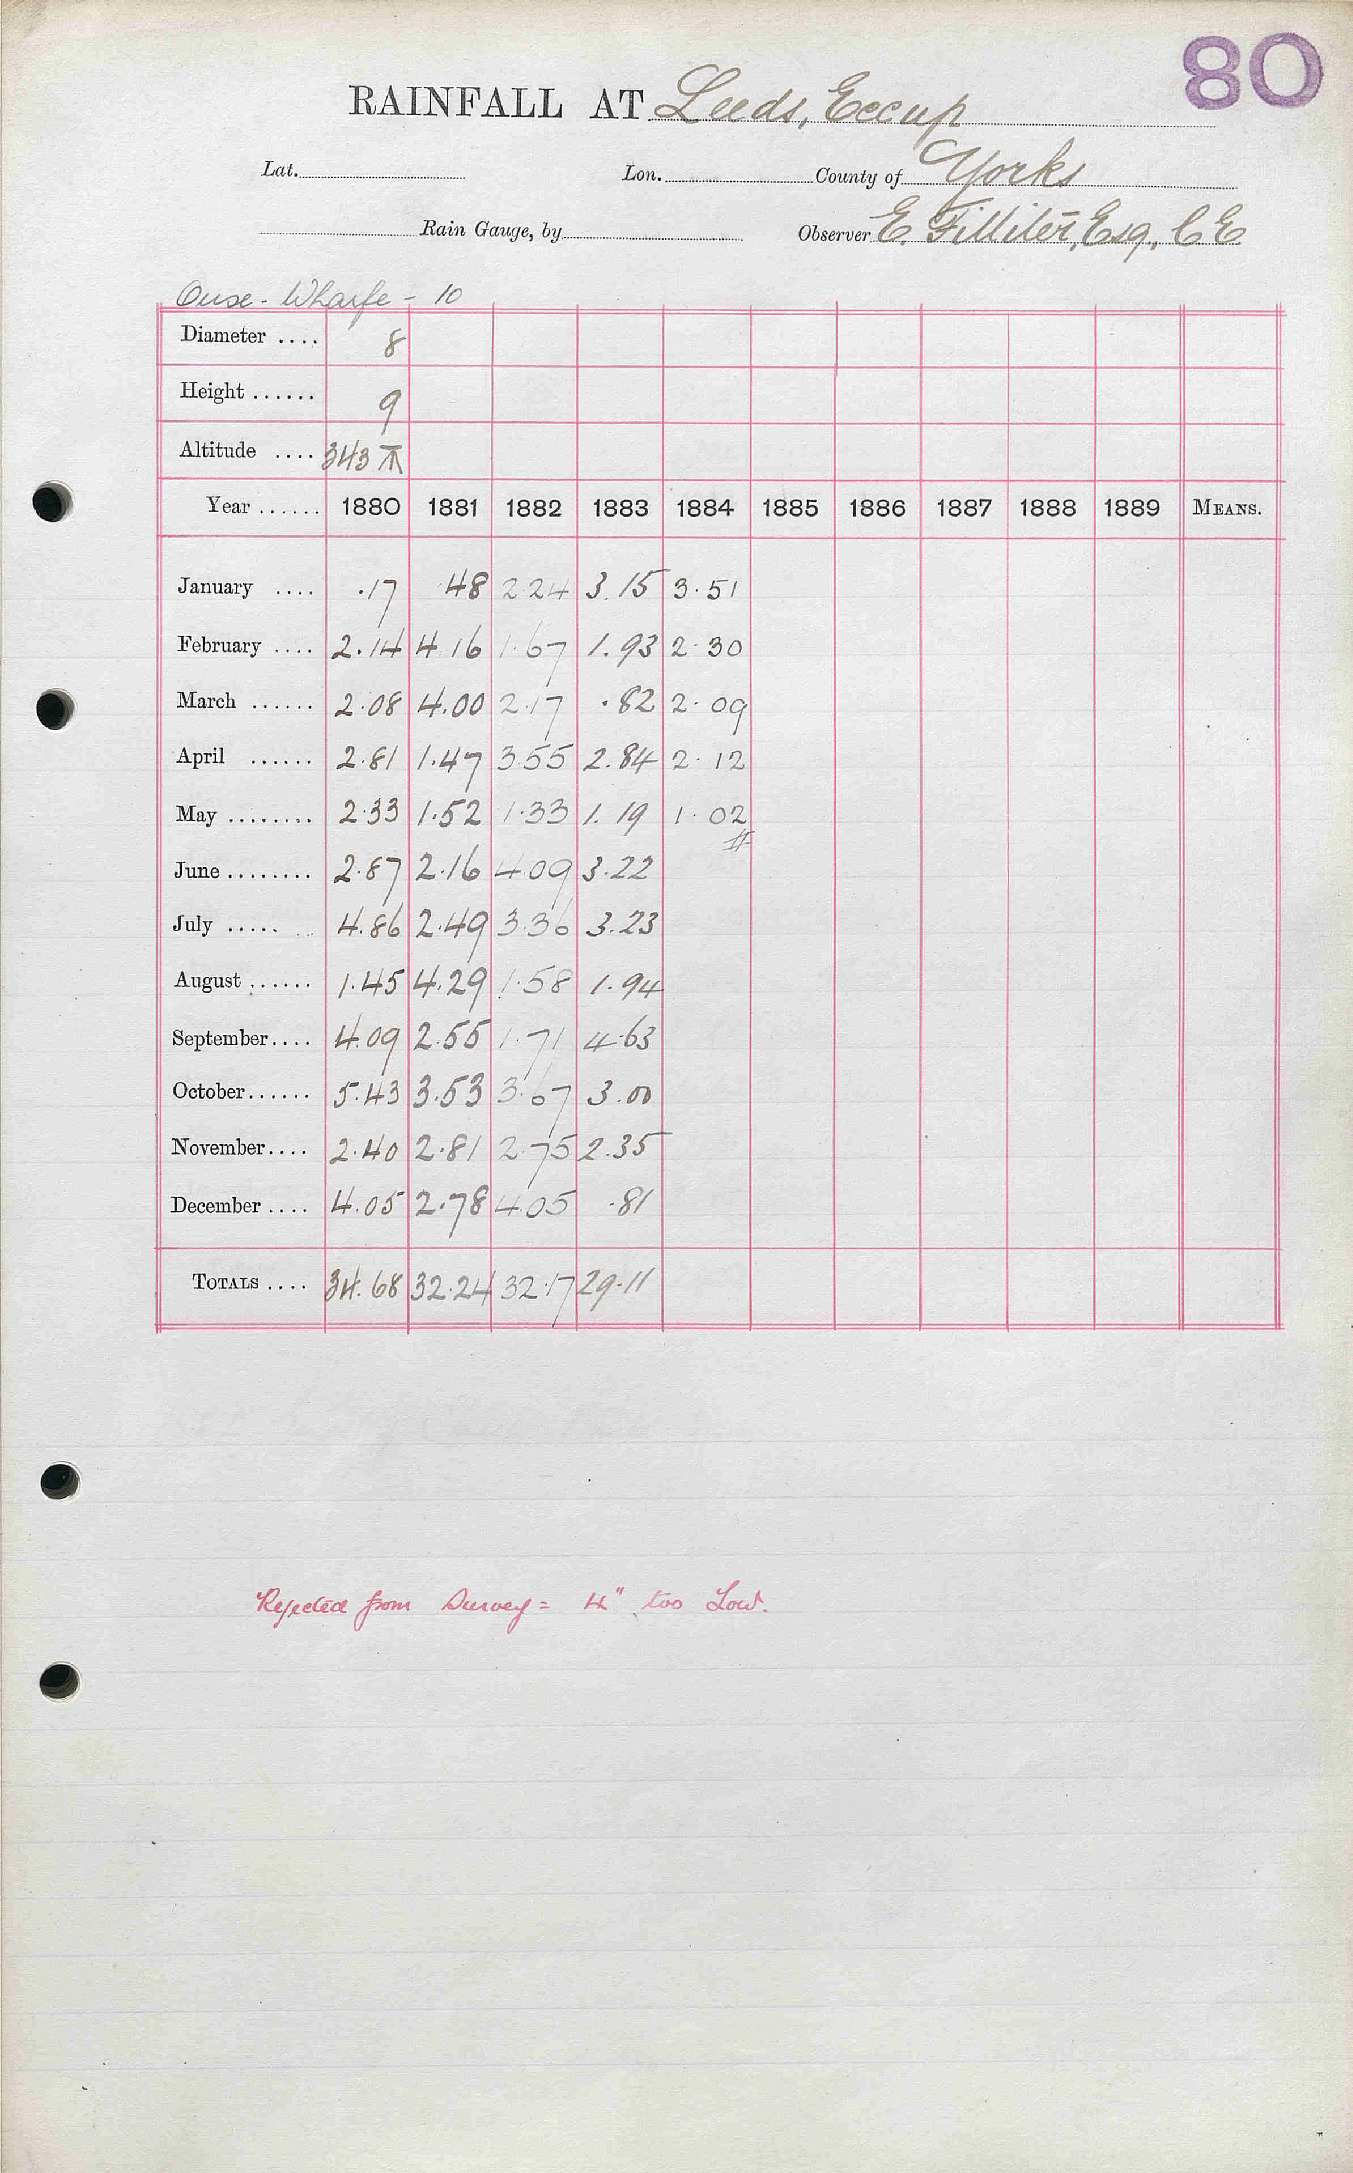 80
RAINFALL AT Leeds, Eccup
Lat. Lon. County of Yorks
Rain Gauge, by Observer E. Filliter, Esq., C E
Ouse - Wharfe - 10
Diameter .... 8
Height ...... 9
Altitude .... 343
Year ...... 1880 1881 1882 1883 1884 1885 1886 1887 1888 1889 MEANS.
January .... .17 .48 2.24 3.15 3.51
February .... 2.14 4.16 1.67 1.93 2.30
March ...... 2.08 4.00 2.17 .82 2.09
April ...... 2.81 1.47 3.55 2.84 2.12
May ........ 2.33 1.52 1.33 1.19 1.02
June ........ 2.87 2.16 4.09 3.22
July ..... 4.86 2.49 3.36 3.23
August ...... 1.45 4.29 1.58 1.94
September .... 4.09 2.55 1.71 4.63
October ...... 5.43 3.53 3.67 3.00
November .... 2.40 2.81 2.75 2.35
December .... 4.05 2.78 4.05 .81
TOTALS .... 34.68 32.24 32.17 29.11
Rejected from Survey = 4" too Low.